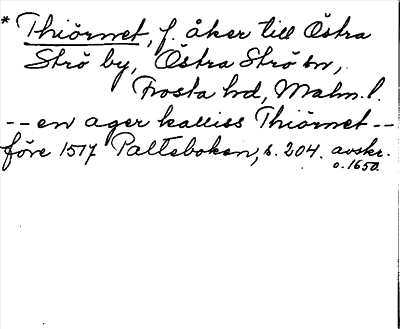 * Thiörnet, f. åker till Östra
Strö by, Östra Strö sn,
Frosta hd, Malm. l.
-- en ager kalliss Thiörnet --
före 1517 Palteboken, s. 204. avskr.
o. 1650.